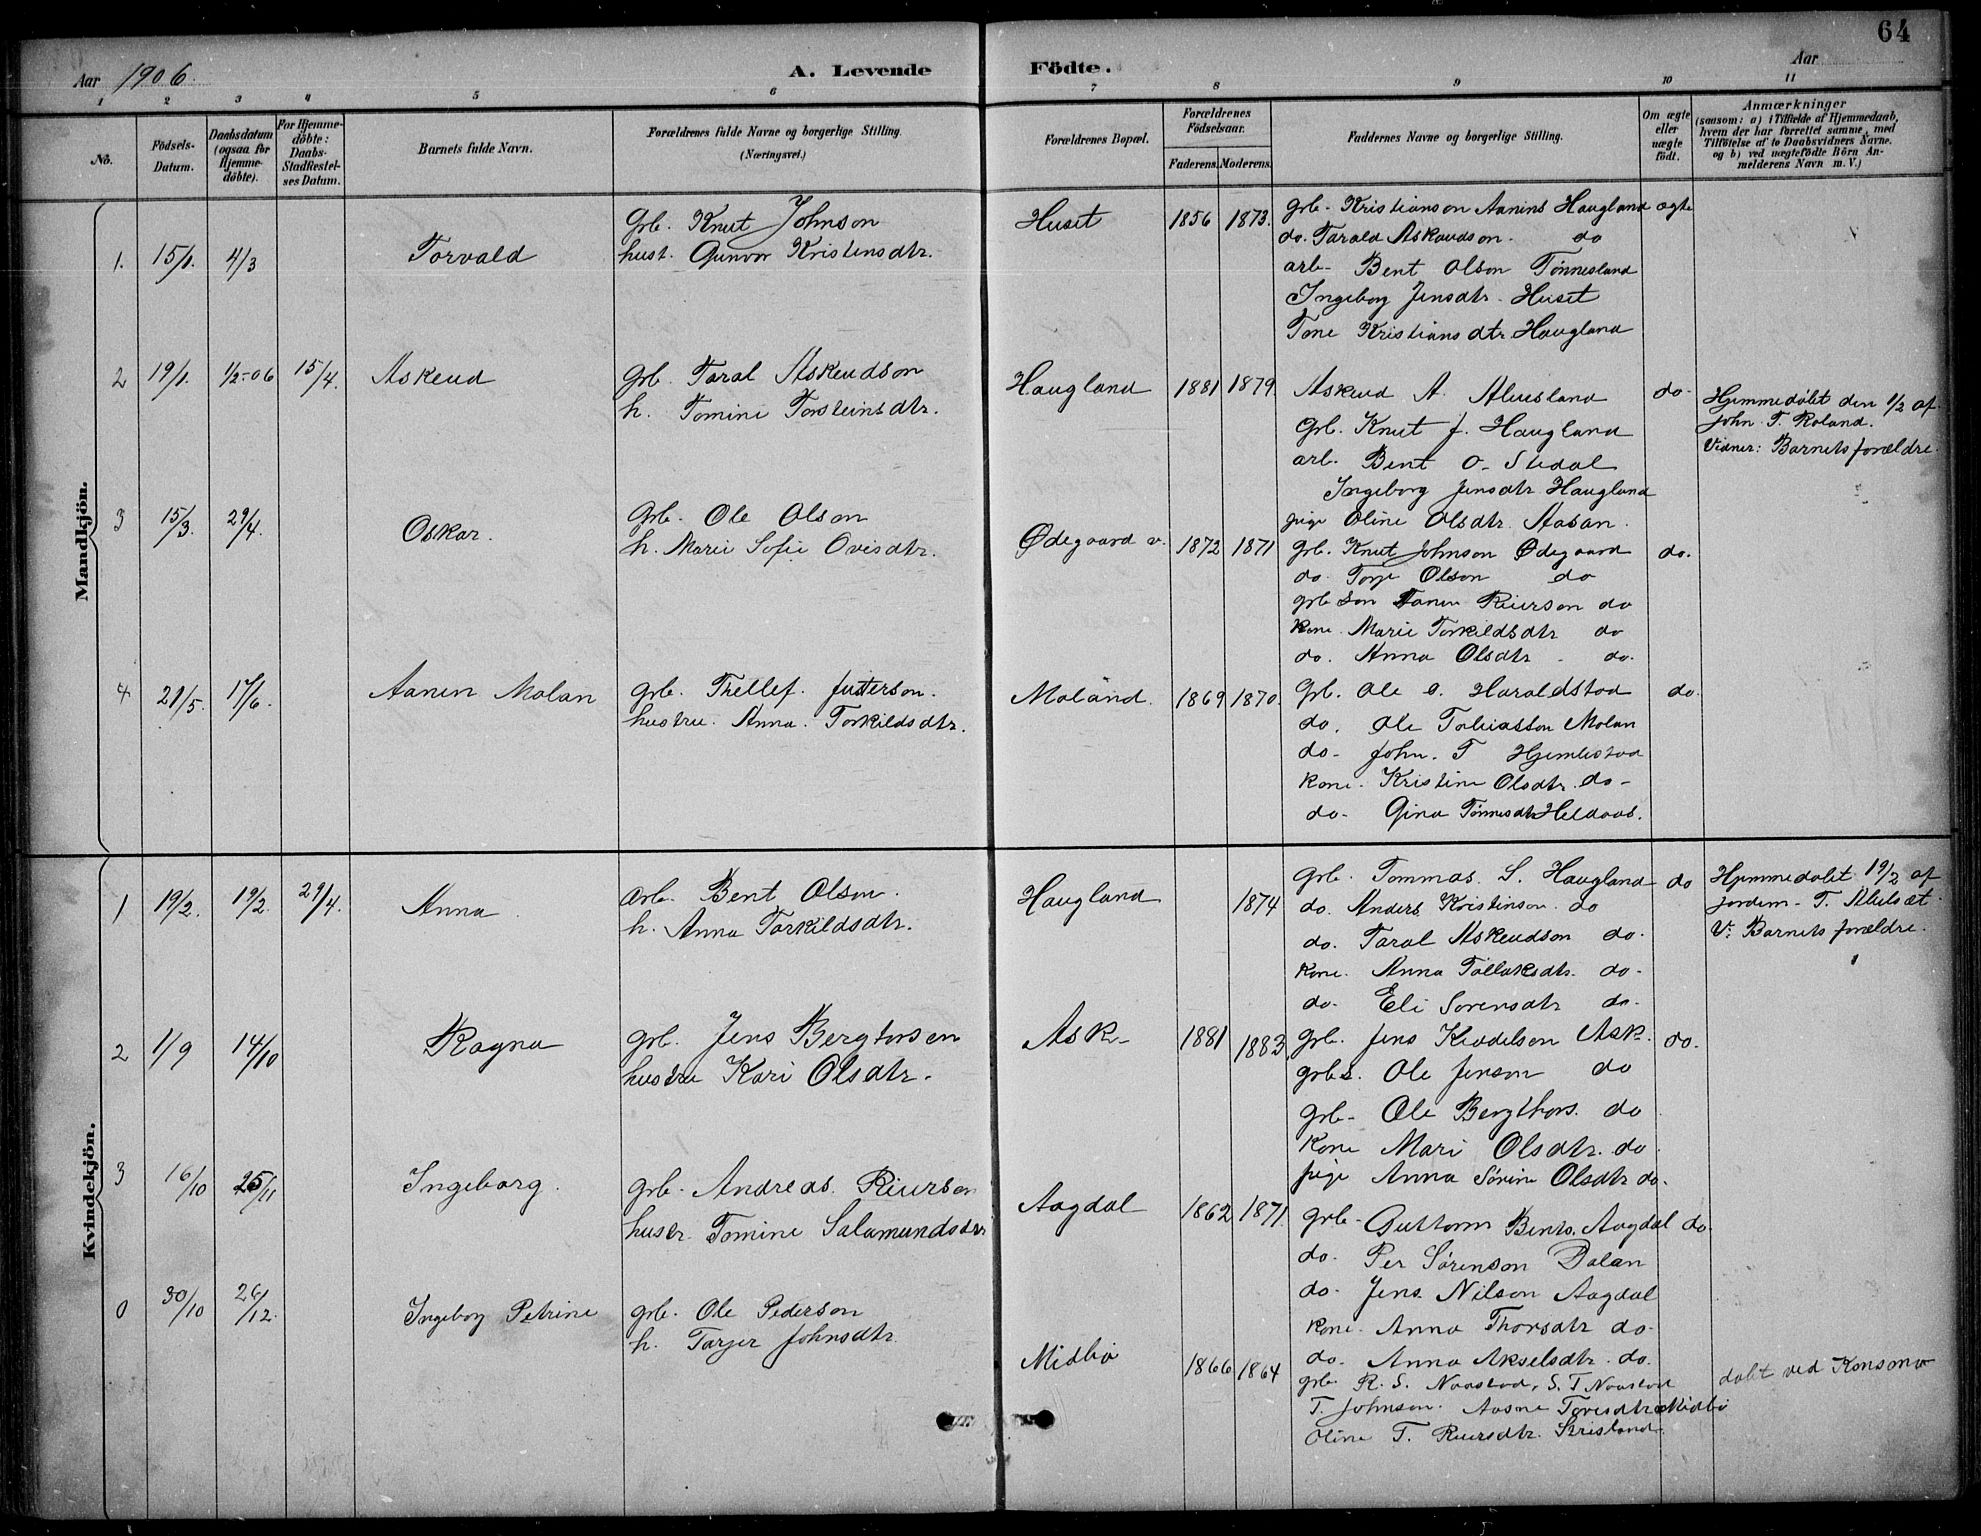 64
Aar 1906. A. Levende Födte. Aar
1 2 3 4 5 6 7 8 9 10 11
No. Födsels-Datum. Daabsdatum (ogsaa for Hjemme-döbte). For Hjemme-döbte: Daabs-Stadfestel-ses Datum. Barnets fulde Navn. Forældrenes fulde Navne og borgerlige Stilling. (Næringsvei.) Forældrenes Bopæl. Forældrenes Födselsaar. Faderens. Moderens. Faddernes Navne og borgerlige Stilling. Om ægte eller uægte födt. Anmærkninger (saasom: a) i Tilfælde af Hjemmedaab, hvem der har forrettet samme, med Tilföielse af to Daabsvidners Navne, og b) ved uægtefödte Börn An-melderens Navn m. V.)
Mandkjön.
1. 15/1. 4/3 Torvald
Grb. Knut Johnson
hust. Gunvor Kristensdtr.
Huset 1856 1873.
grb- Kristianson Aanins Haugland ægte
do. Tarald Askaudson. do
arb- Bent Olson Tønnesland
Ingeborg Jensdtr. Huset
Tone Kristiansdtr Haugland
2 19/1. 1/2-06 15/4. Askeud
Grb. Taral Askeudson
h. Tomine Torsteinsdtr.
Haugland 1881 1879.
Askeud A. do-
Grb. Knut J. Haugland
arb. Bent O- Stedal
Ingeborg Jensdtr Haugland
pige Oline Olsdtr. Aasan.
Hjemmedøbt den 1/2 af
John T. Roland.
Vidner: Barnets forældre.
3 15/3. 29/4. Oskar.
Grb. Ole Olson
h. Marie Sofie Ovisdtr.
Ødegaard v. 1872 1871
grb. Knut Johnson Ødegaard do.
do. Torje Olson do
grb son Aanen Reierson do
kone. Marie Torkildsdtr do
do. Anna Olsdtr - do.
4 21/5. 17/6. Aanen Molan
grb. Thellef. Justerson.
hustru. Anna. Torkildsdtr.
Moland. 1869 1870.
Grb. Ole O. Haraldstad do.
do. Ole Tobiasson Molan
do- John. T Hjemlestad
kone. Kristine Olsdtr. do-
do- Gina Tønnesdtr Heldaas.
Kvindekjön.
1 19/2. 19/2. 29/4. Anna
Arb. Bent Olson.
h. Anna Torkildsdtr.
Haugland 1874
grb. Tommas. S. Haugland do
do. Anders Kristenson. do
do. Taral Askeudson do.
kone. Anna Tallaksdtr. do-
do- Eli Sorensdtr do-
Hjemmedøbt 19/2 af
jordem- T.
V: Barnets forældre.
2 1/9 14/10 Ragna
grb. Jens Bergtorsen
hustru Kari Olsdtr.
Ask- 1881 1883
grb. Jens Keddelson Ask. do.
grbs. Ole Jenson do
grb- Ole Bergthors. do
Kone Mari Olsdtr. do
pige Anna Sørine Olsdtr do-
3 16/10 25/11 Ingeborg.
grb- Andreas. Reierson
hustr. Tomine Salamundsdtr
Aagdal 1862 1871.
grb- Guttorm Bents. Aagdal do.
do- Per Sørenson Dalan
do. Jens Nilson Aagdal
kone. Anna Thorsdtr do-
do- Anna Akselsdtr. do.
0 30/10 26/12. Ingeborg Petrine
grb. Ole Pederson
h. Tarjer Johnsdtr
Midbø 1866 1864
grb R. S. Naastad, S. T Naastad
T. Johnson. Aasne Toresdtr Midbø
Oline T. Reiersdtr.
døbt ved